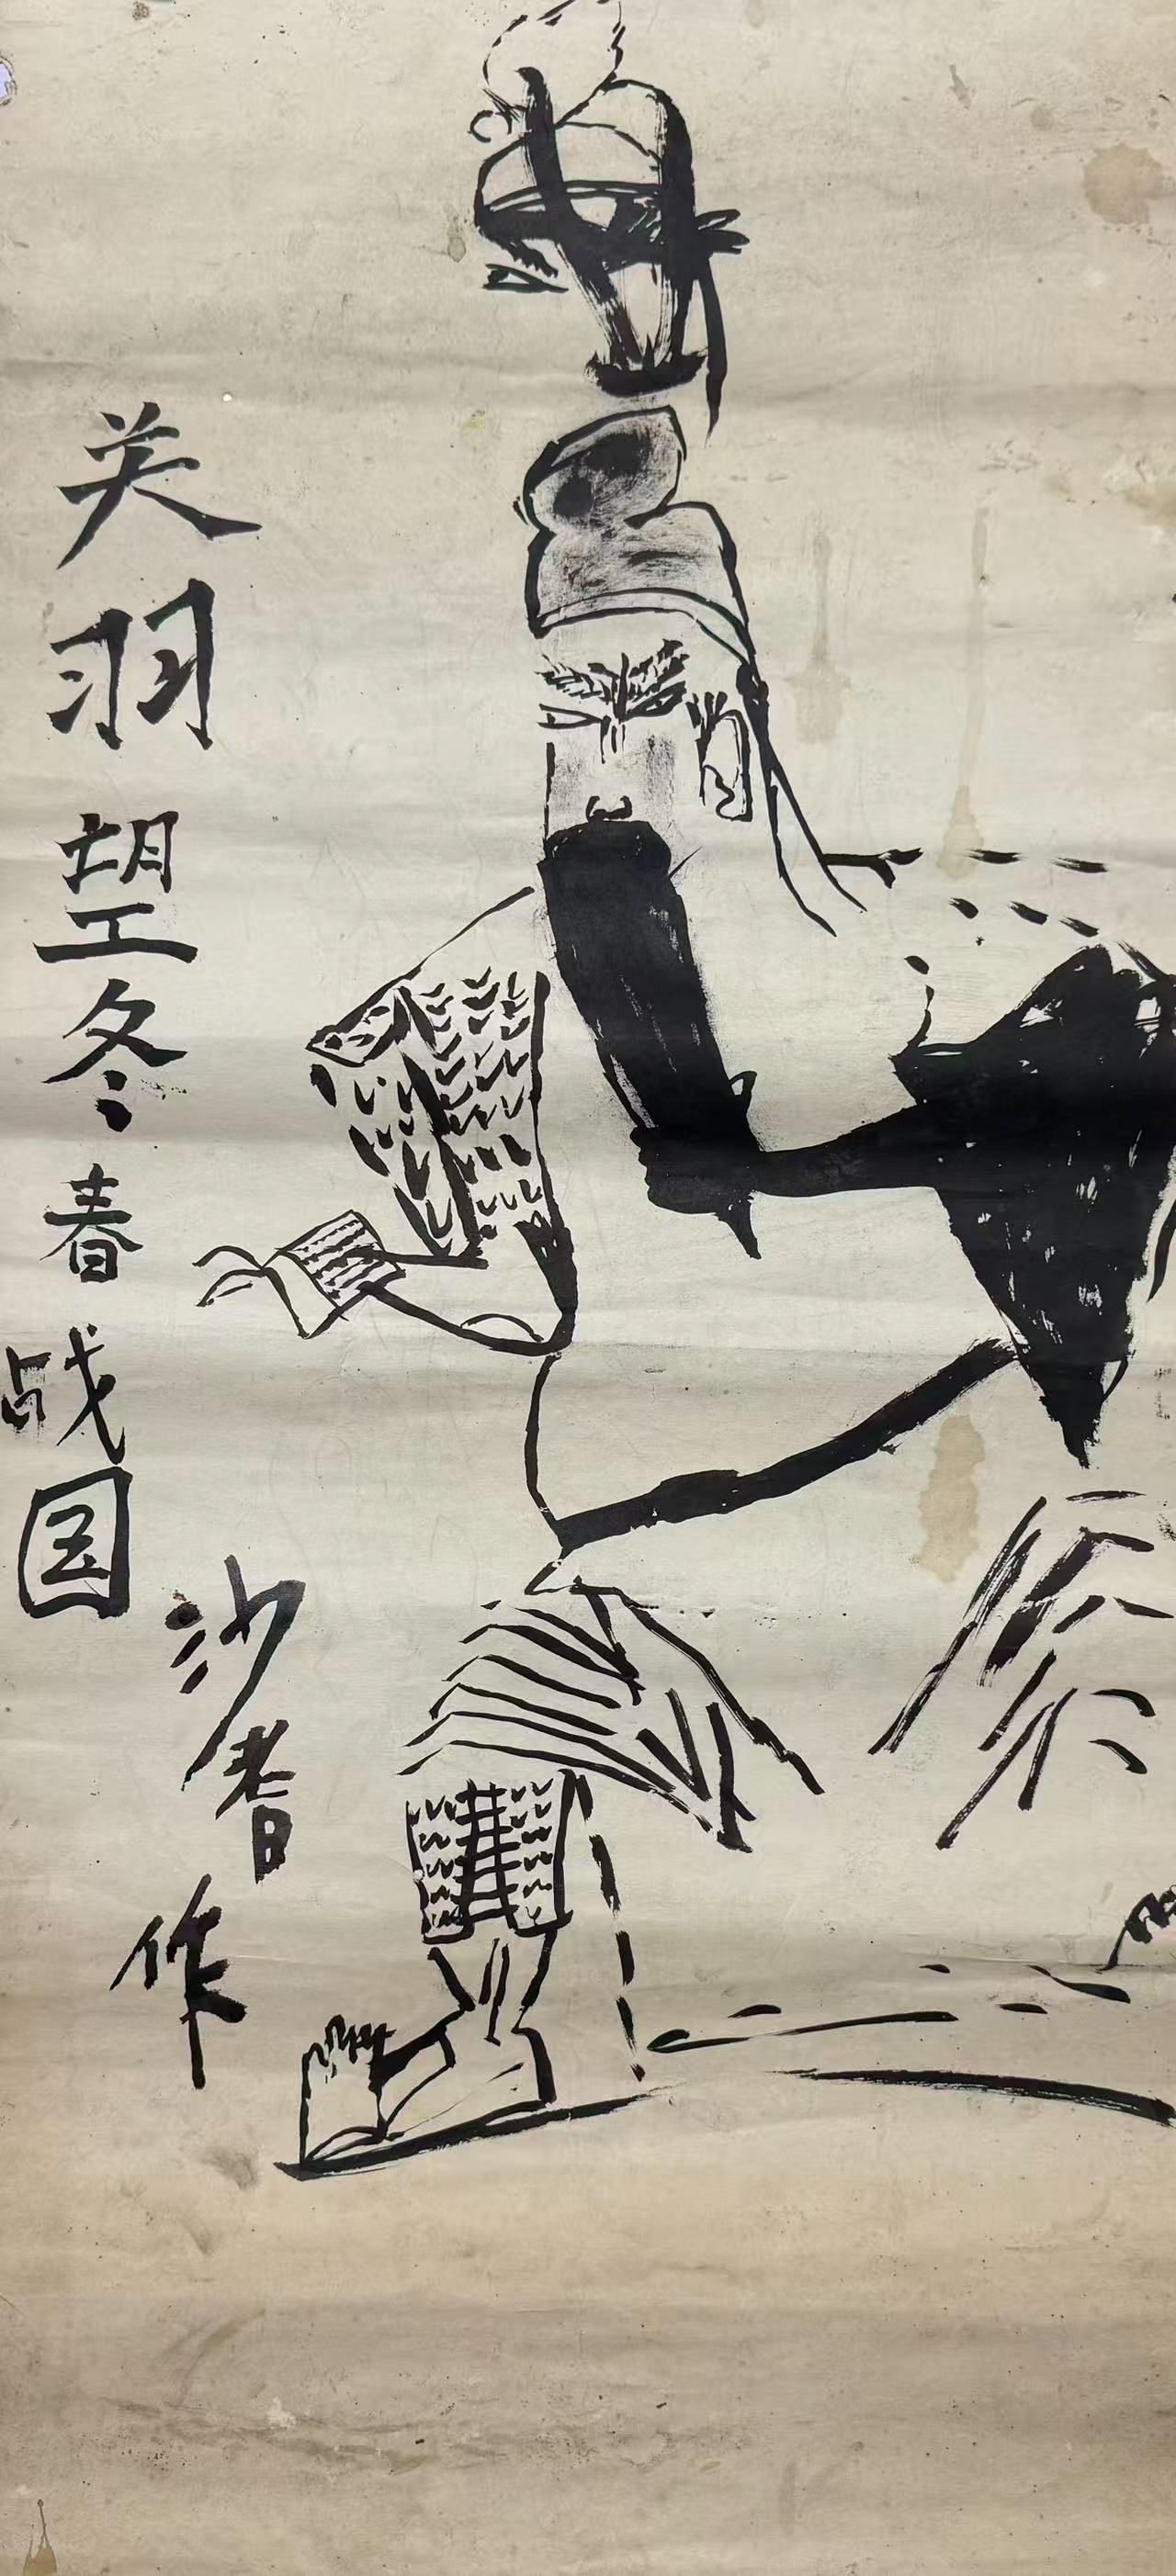 关羽望冬春战国
沙耆作